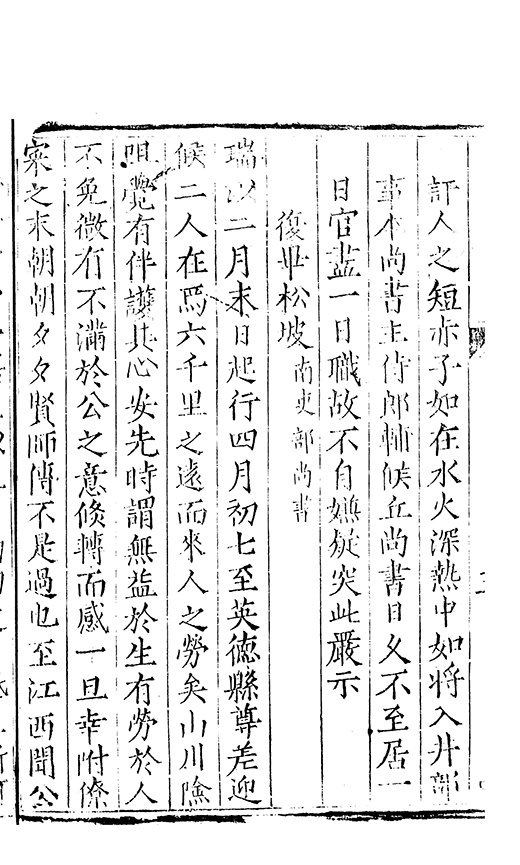 訐人之短赤子如在水火深熱中如將入井部
事本尚書主侍郎輔候丘尚書日久不至居一
日官盡一日職故不自嫌疑突此嚴示
復畢松坡南吏部尚書
瑞以二月末日起行四月初七至英德縣尊差迎
候二人在焉六千里之遠而來人之勞矣山川險
阻覺有伴護其心安先時謂無益於生有勞於人
不免微有不滿於公之意倐轉而感一旦幸附僚
寀之末朝朝夕夕賢師傅不是過也至江西聞公